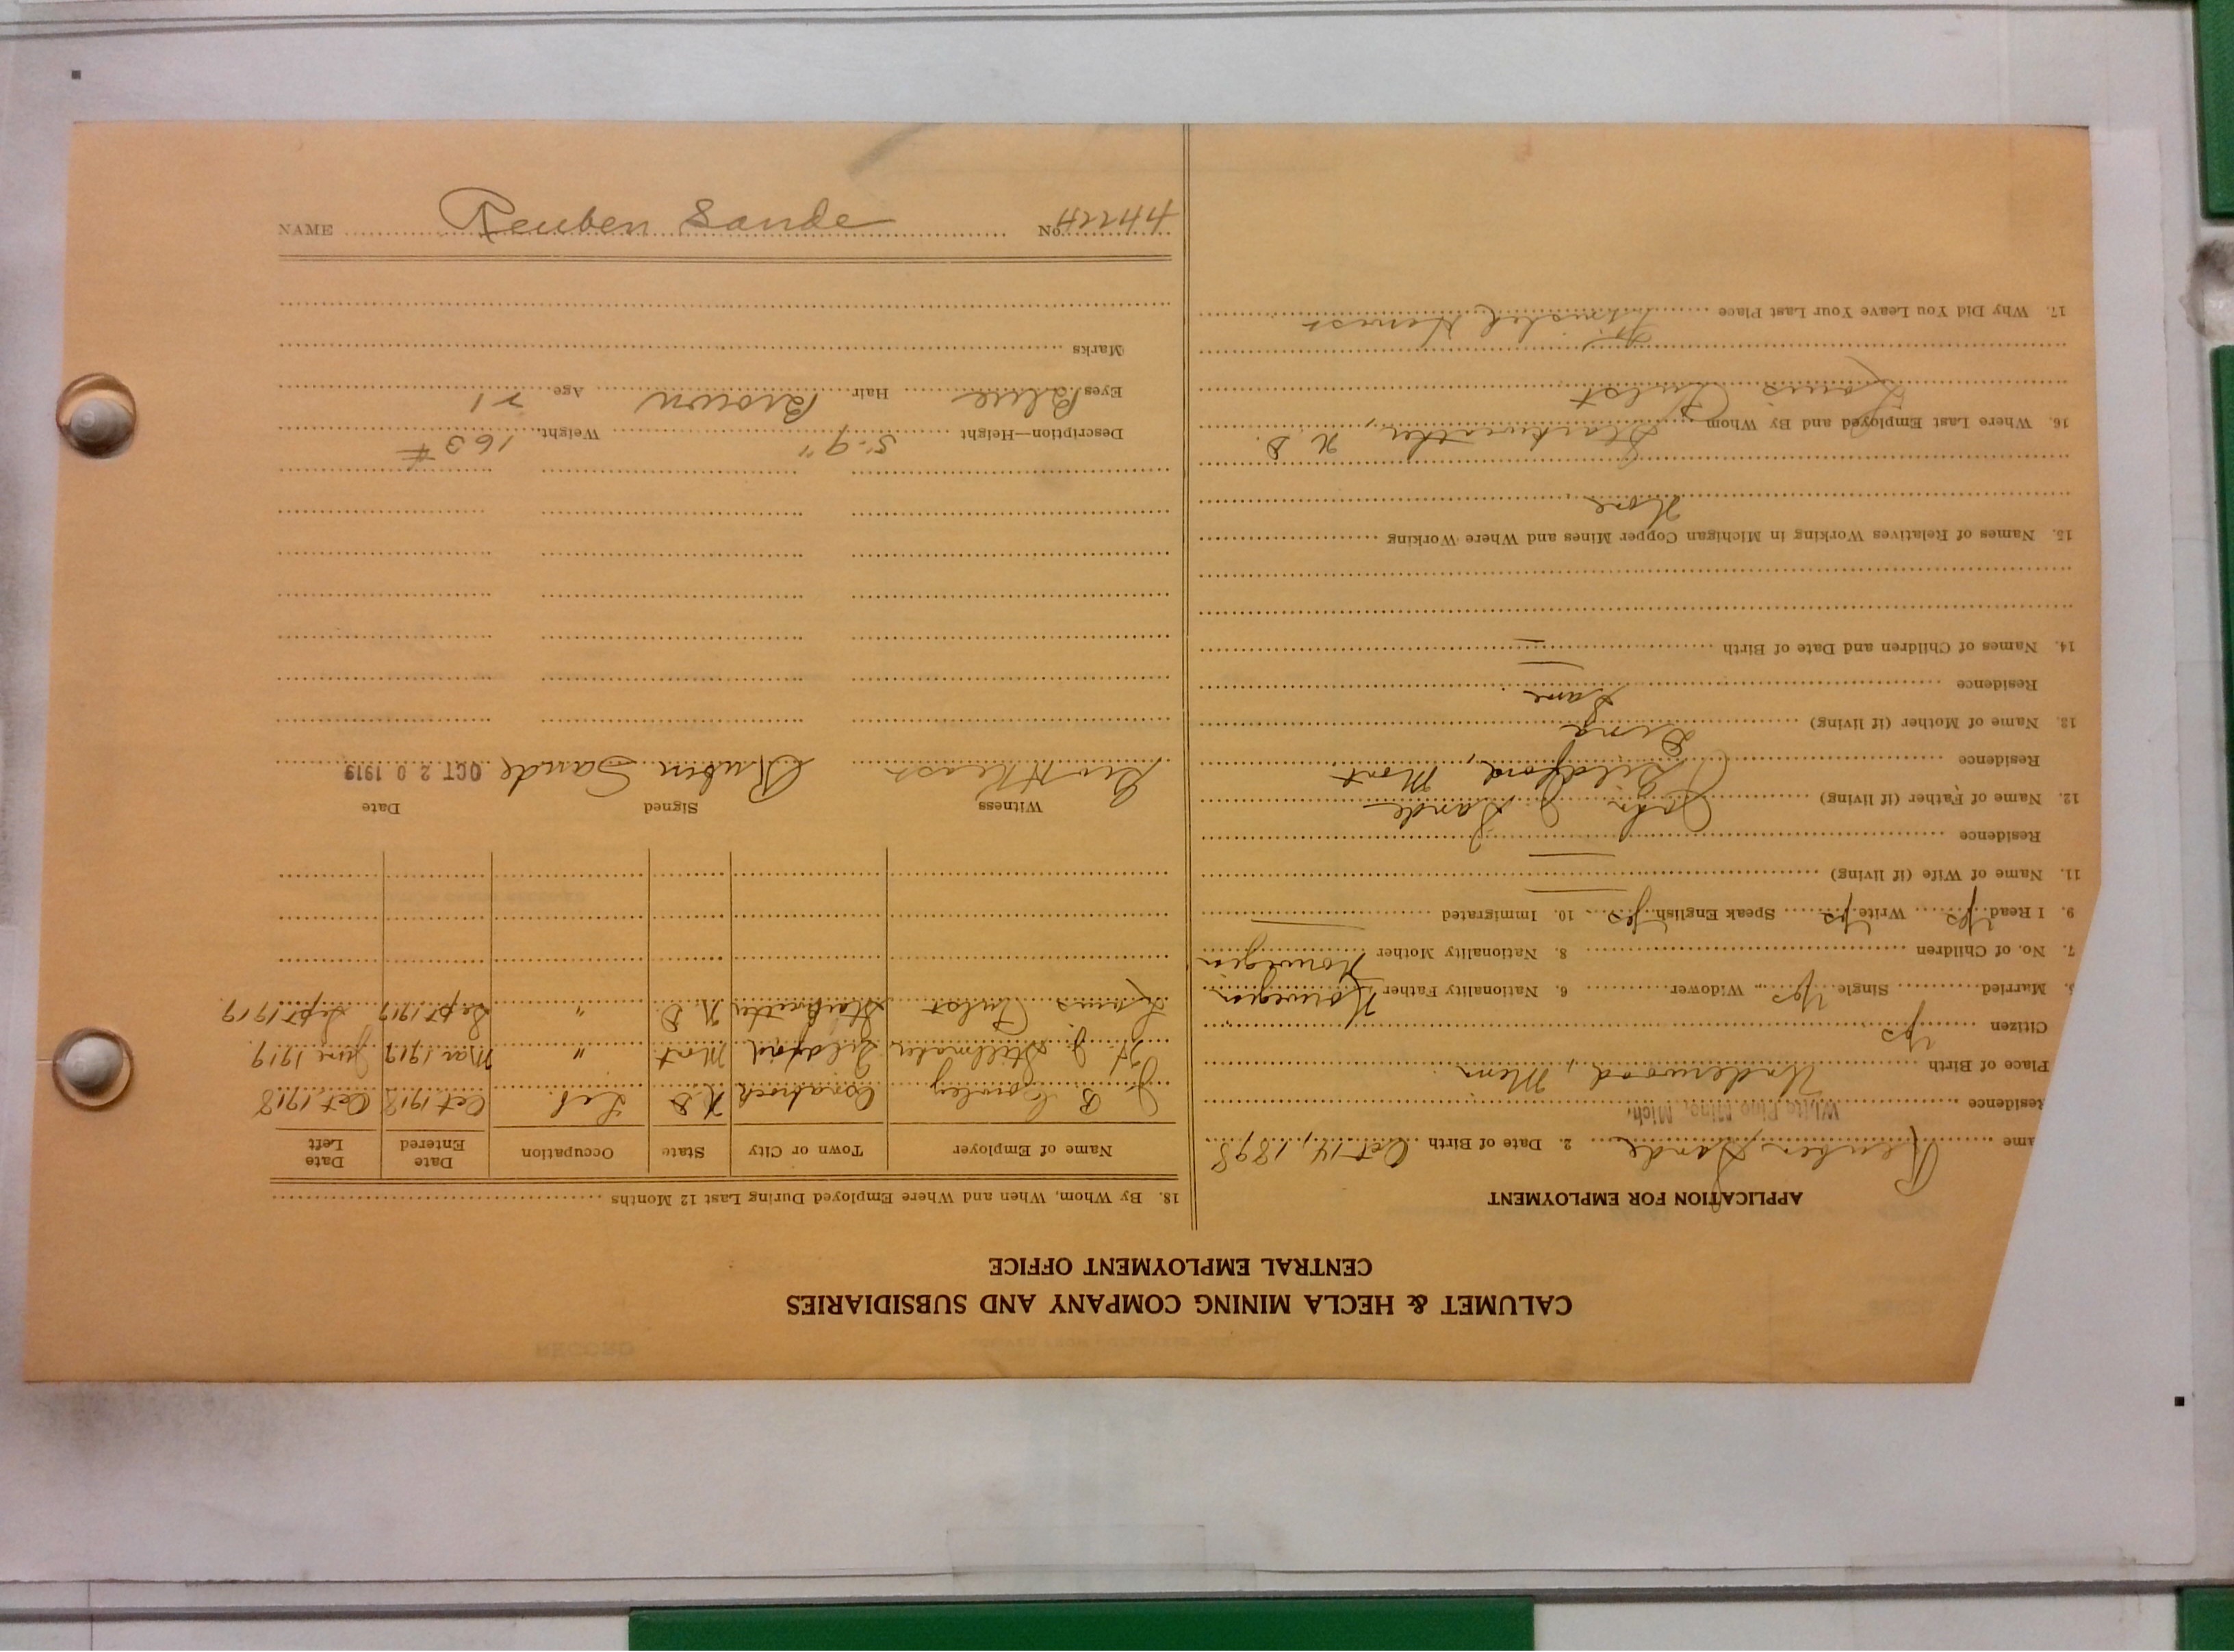 CALUMET & HECLA MINING COMPANY AND SUBSIDIARIES
CENTRAL EMPLOYMENT OFFICE
APPLICATION FOR EMPLOYMENT
ame Reuben Sande 2. Date of Birth Oct 14, 1898
Residence White Pine Mine, Mich.
Place of Birth Underwood, Minn
Citizen yes
Married Single yes Widower 6. Nationality Father Norwegian
7. No. of Children 8. Nationality Mother Norwegian
9. I Read yes Write yes Speak English yes 10. Immigrated
11. Name of Wife (if living)
Residence
12. Name of Father (if living) John J. Sande
Residence Gildford, Mont
13. Name of Mother (if living) Dina
Residence Same
14. Names of Children and Date of Birth
15. Names of Relatives Working in Michigan Copper Mines and Where Working
None
16. Where Last Employed and By Whom Starkweather, N. D.
Louis
17. Why Did You Leave Your Last Place Finished Harvest
18. By Whom, When and Where Employed During Last 12 Months
Name of Employer Town or City State Occupation Date Entered Date Left
J. B. N. D Lab. Oct 1918 Oct 1918
H. J. Stillmaker Gildford Mont " Mar 1919 June 1919
Louis Starkweather N. D. " Sept 1919 Sept 1919
Witness Signed Date
Geo H Keast Rubin Sande OCT 20 1919
Description—Height 5'-9" Weight 163 #
Eyes Blue Hair Brown Age 21
Marks
NAME Reuben Sande No. 42244
RECORD